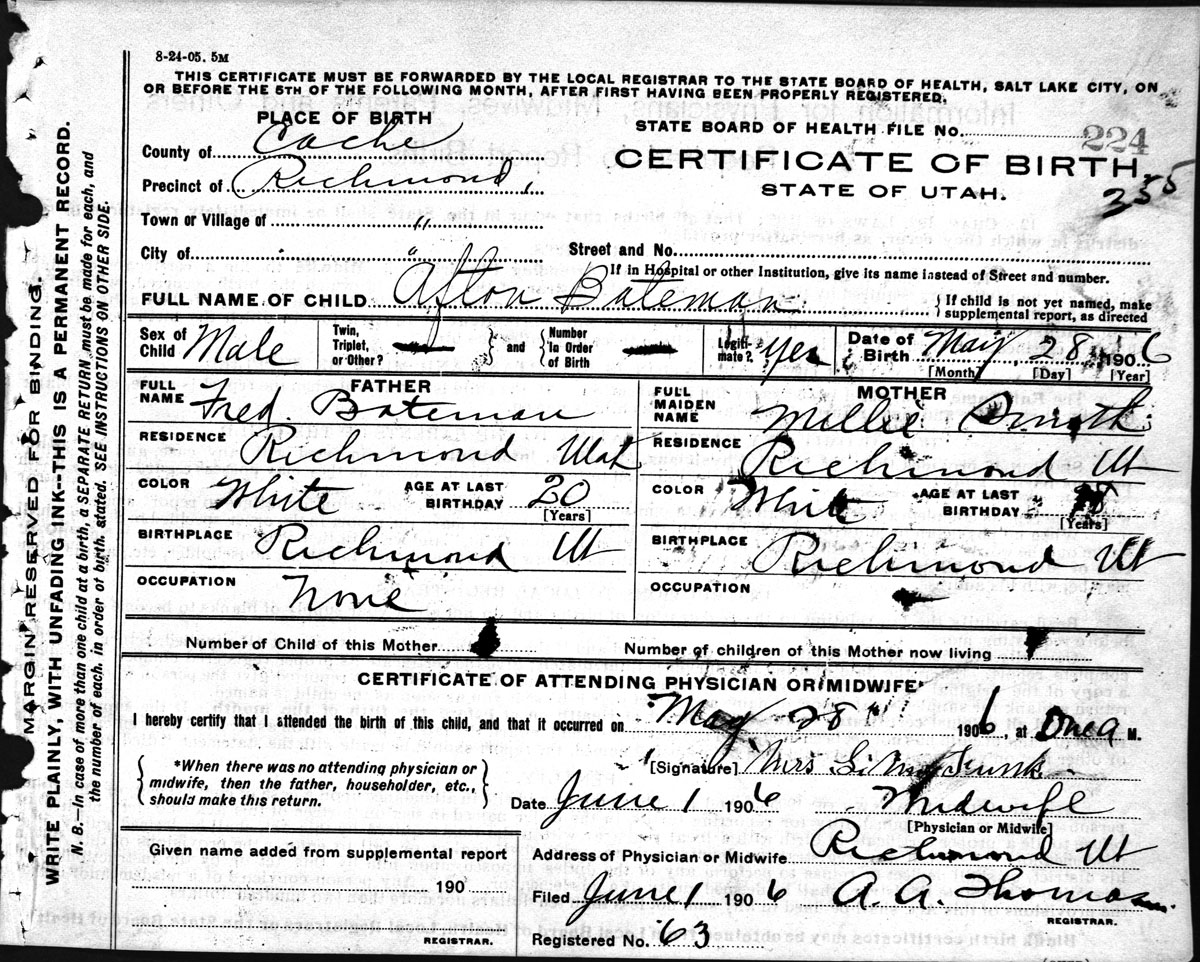 8-24-05. 5M
THIS CERTIFICATE MUST BE FORWARDED BY THE LOCAL REGISTRAR TO THE STATE BOARD OF HEALTH, SALT LAKE CITY, ON
OR BEFORE THE 5TH OF THE FOLLOWING MONTH, AFTER FIRST HAVING BEEN PROPERLY REGISTERED.
PLACE OF BIRTH
STATE BOARD OF HEALTH FILE NO. 224
County of Cache
CERTIFICATE OF BIRTH
355
Precinct of Richmond,
STATE OF UTAH.
Town or Village of "
City of "
Street and No.
If in Hospital or other Institution, give its name instead of Street and number.
FULL NAME OF CHILD Afton Bateman
If child is not yet named, make
supplemental report, as directed
Sex of Child Male
Twin, Triplet, or Other? — and Number in Order of Birth —
Legiti-mate? Yes
Date of Birth May 28 1906
[Month] [Day] [Year]
FATHER
FULL NAME Fred. Bateman
RESIDENCE Richmond Utah
COLOR White AGE AT LAST BIRTHDAY 20
[Years]
BIRTHPLACE Richmond Ut
OCCUPATION None
MOTHER
FULL MAIDEN NAME Millie Smith
RESIDENCE Richmond Ut
COLOR White AGE AT LAST BIRTHDAY
[Years]
BIRTHPLACE Richmond Ut
OCCUPATION —
Number of Child of this Mother
Number of children of this Mother now living
CERTIFICATE OF ATTENDING PHYSICIAN OR MIDWIFE*
I hereby certify that I attended the birth of this child, and that it occurred on May 28" 1906, at One a M.
*When there was no attending physician or
midwife, then the father, householder, etc.,
should make this return.
[Signature] Mrs Funk
Date June 1 1906 Midwife
[Physician or Midwife]
Given name added from supplemental report
190
REGISTRAR.
Address of Physician or Midwife Richmond Ut
Filed June 1 1906 A. A. Thomas
REGISTRAR.
Registered No. 63
MARGIN RESERVED FOR BINDING.
WRITE PLAINLY, WITH UNFADING INK--THIS IS A PERMANENT RECORD.
N. B.—In case of more than one child at a birth, a SEPARATE RETURN must be made for each, and
the number of each, in order of birth, stated. SEE INSTRUCTIONS ON OTHER SIDE.